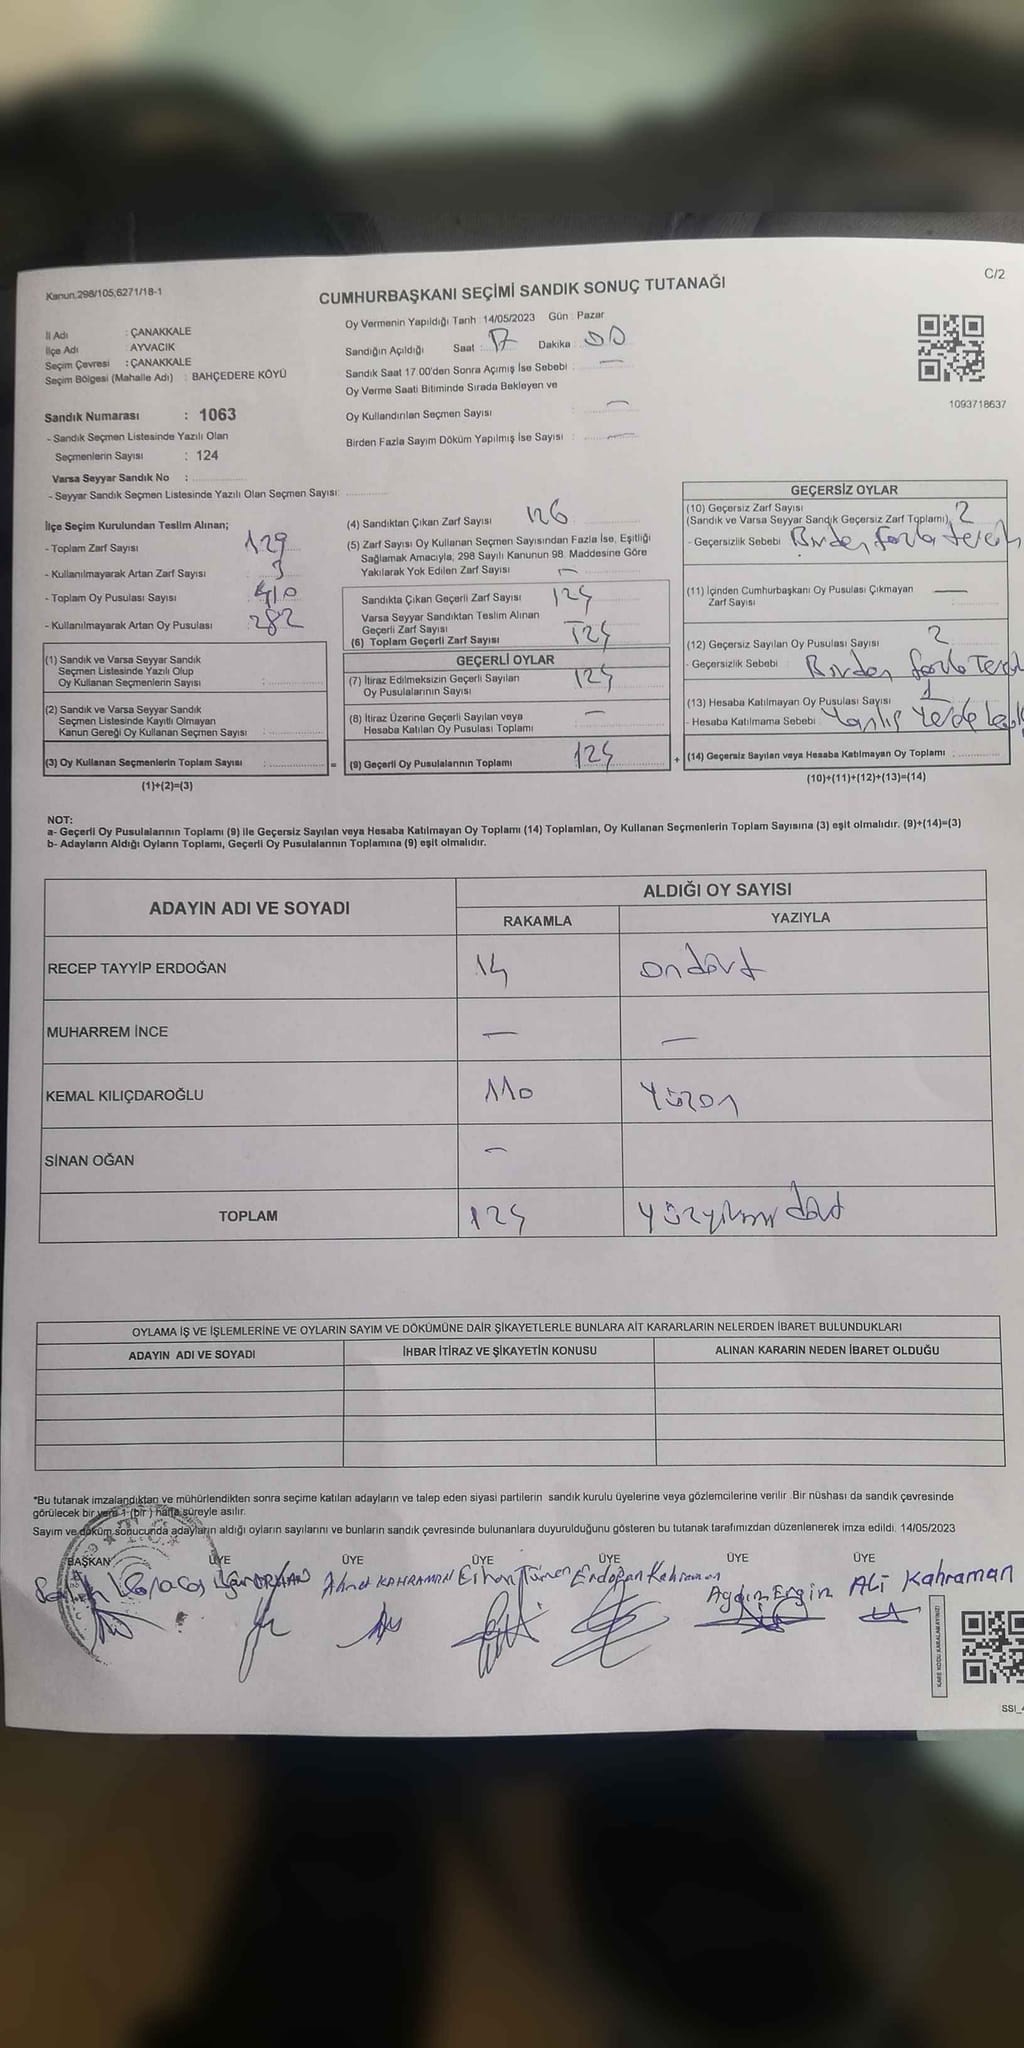 Kanun,298/105;6271/18-1
C/2
CUMHURBAŞKANI SEÇİMİ SANDIK SONUÇ TUTANAĞI
İl Adı : ÇANAKKALE
İlçe Adı : AYVACIK
Seçim Çevresi : ÇANAKKALE
Seçim Bölgesi (Mahalle Adı) : BAHÇEDERE KÖYÜ
Sandık Numarası : 1063
- Sandık Seçmen Listesinde Yazılı Olan
Seçmenlerin Sayısı : 124
Varsa Seyyar Sandık No :
- Seyyar Sandık Seçmen Listesinde Yazılı Olan Seçmen Sayısı:
Oy Vermenin Yapıldığı Tarih : 14/05/2023 Gün : Pazar
Sandığın Açıldığı Saat : 17 Dakika : 00
Sandık Saat 17 00'den Sonra Açımış İse Sebebi : —
Oy Verme Saati Bitiminde Sırada Bekleyen ve
Oy Kullandırılan Seçmen Sayısı : —
Birden Fazla Sayım Döküm Yapılmış İse Sayısı : —
1093718637
İlçe Seçim Kurulundan Teslim Alınan;
- Toplam Zarf Sayısı : 129
- Kullanılmayarak Artan Zarf Sayısı : 3
- Toplam Oy Pusulası Sayısı : 410
- Kullanılmayarak Artan Oy Pusulası : 282
(1) Sandık ve Varsa Seyyar Sandık
Seçmen Listesinde Yazılı Olup
Oy Kullanan Seçmenlerin Sayısı :
(2) Sandık ve Varsa Seyyar Sandık
Seçmen Listesinde Kayıtlı Olmayan
Kanun Gereği Oy Kullanan Seçmen Sayısı :
(3) Oy Kullanan Seçmenlerin Toplam Sayısı : =
(1)+(2)=(3)
(4) Sandıktan Çıkan Zarf Sayısı 126
(5) Zarf Sayısı Oy Kullanan Seçmen Sayısından Fazla İse, Eşitliği
Sağlamak Amacıyla, 298 Sayılı Kanunun 98. Maddesine Göre
Yakılarak Yok Edilen Zarf Sayısı : —
Sandıkta Çıkan Geçerli Zarf Sayısı 124
Varsa Seyyar Sandıktan Teslim Alınan
Geçerli Zarf Sayısı
(6) Toplam Geçerli Zarf Sayısı 124
GEÇERLİ OYLAR
(7) İtiraz Edilmeksizin Geçerli Sayılan
Oy Pusulalarının Sayısı 124
(8) İtiraz Üzerine Geçerli Sayılan veya
Hesaba Katılan Oy Pusulası Toplamı —
(9) Geçerli Oy Pusulalarının Toplamı 124 +
GEÇERSİZ OYLAR
(10) Geçersiz Zarf Sayısı
(Sandık ve Varsa Seyyar Sandık Geçersiz Zarf Toplamı) 2
- Geçersizlik Sebebi : Birden fazla tercih
(11) İçinden Cumhurbaşkanı Oy Pusulası Çıkmayan
Zarf Sayısı : —
(12) Geçersiz Sayılan Oy Pusulası Sayısı : 2
- Geçersizlik Sebebi : Birden fazla Terc
(13) Hesaba Katılmayan Oy Pusulası Sayısı : 1
- Hesaba Katılmama Sebebi : Yanlış Yerde
(14) Geçersiz Sayılan veya Hesaba Katılmayan Oy Toplamı :
(10)+(11)+(12)+(13)=(14)
NOT:
a- Geçerli Oy Pusulalarının Toplamı (9) ile Geçersiz Sayılan veya Hesaba Katılmayan Oy Toplamı (14) Toplamları, Oy Kullanan Seçmenlerin Toplam Sayısına (3) eşit olmalıdır. (9)+(14)=(3)
b- Adayların Aldığı Oyların Toplamı, Geçerli Oy Pusulalarının Toplamına (9) eşit olmalıdır.
ADAYIN ADI VE SOYADI
ALDIĞI OY SAYISI
RAKAMLA YAZIYLA
RECEP TAYYİP ERDOĞAN 14 ondört
MUHARREM İNCE — —
KEMAL KILIÇDAROĞLU 110 Yüzon
SİNAN OĞAN —
TOPLAM 124 Yüzyirmi dört
OYLAMA İŞ VE İŞLEMLERİNE VE OYLARIN SAYIM VE DÖKÜMÜNE DAİR ŞİKAYETLERLE BUNLARA AİT KARARLARIN NELERDEN İBARET BULUNDUKLARI
ADAYIN ADI VE SOYADI İHBAR İTİRAZ VE ŞİKAYETİN KONUSU ALINAN KARARIN NEDEN İBARET OLDUĞU
*Bu tutanak imzalandıktan ve mühürlendikten sonra seçime katılan adayların ve talep eden siyasi partilerin sandık kurulu üyelerine veya gözlemcilerine verilir. Bir nüshası da sandık çevresinde
görülecek bir yere 1 (bir ) hafta süreyle asılır.
Sayım ve döküm sonucunda adayların aldığı oyların sayılarını ve bunların sandık çevresinde bulunanlara duyurulduğunu gösteren bu tutanak tarafımızdan düzenlenerek imza edildi. 14/05/2023
BAŞKAN ÜYE ÜYE ÜYE ÜYE ÜYE ÜYE
Ahmet KAHRAMAN Erdoğan Kahraman Aydın Ergin Ali Kahraman
KARE KODU KARALAMAYINIZ!